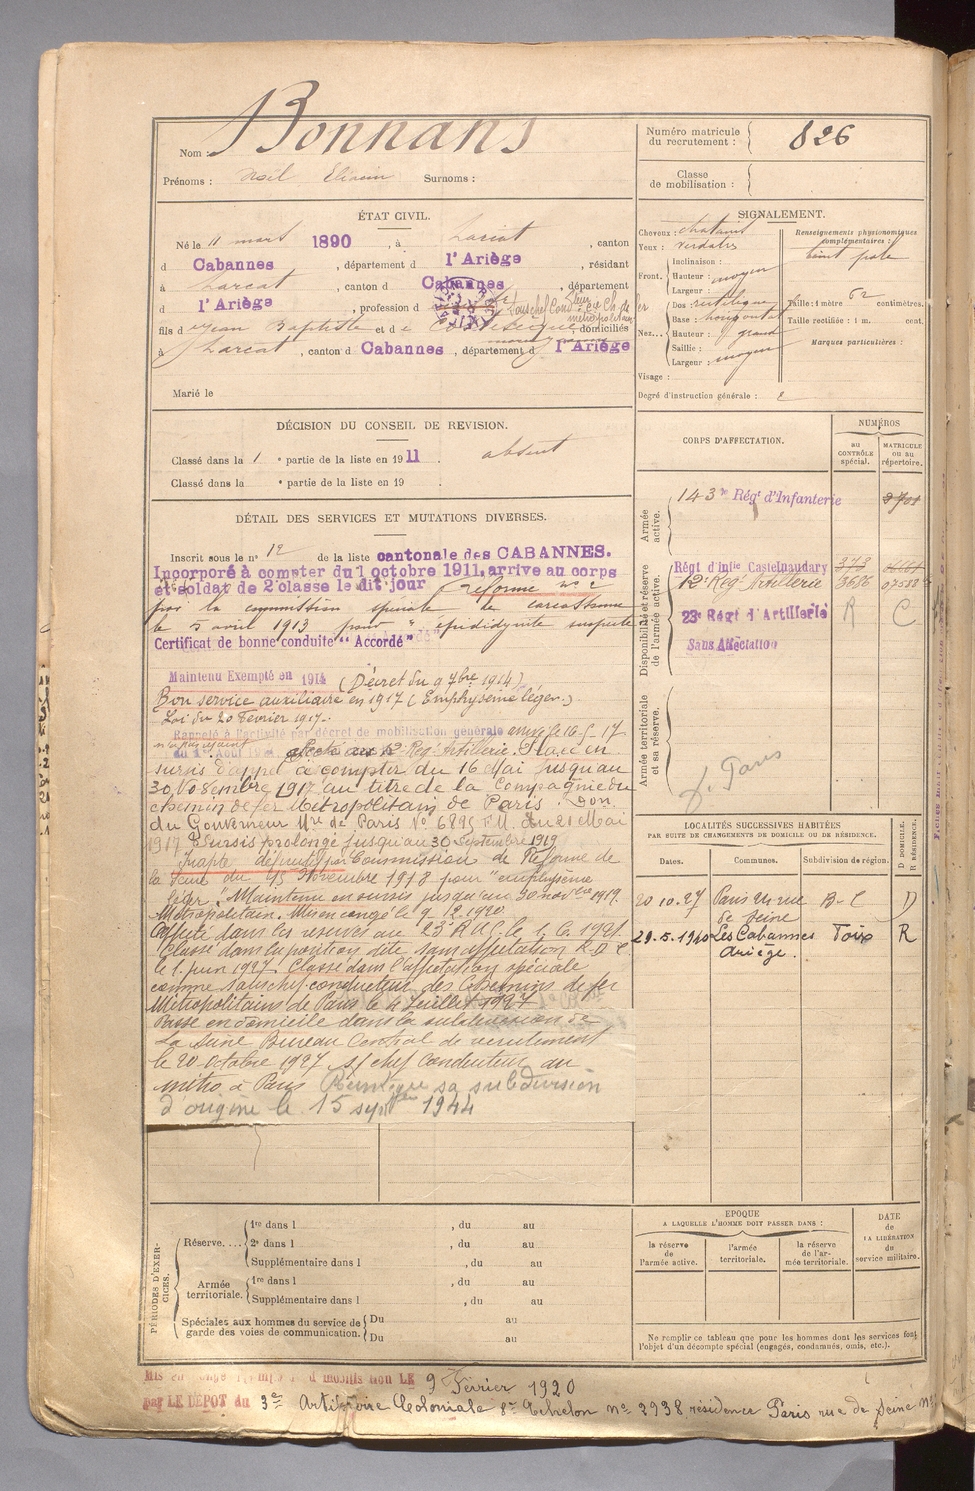 Nom : Bonnans
Prénoms : Noël Eliacin Surnoms :
Numéro matricule du recrutement : 826
Classe de mobilisation :
ÉTAT CIVIL.
Né le 11 mars 1890, à Larcat, canton
d Cabannes, département d l'Ariège, résidant
à Larcat, canton d Cabannes, département
d l'Ariège, profession d
fils d Jean Baptiste et d domiciliés
à Larcat, canton d Cabannes, département d l'Ariège
Marié le
SIGNALEMENT.
Cheveux : chatains
Yeux : verdatres
Front. Inclinaison :
Hauteur : moyen
Largeur :
Nez... Dos : rectiligne
Base : horizontal
Hauteur : grand
Saillie :
Largeur : moyen
Visage :
Renseignements physionomiques complémentaires :
teint pale
Taille : 1 mètre 62 centimètres.
Taille rectifiée : 1 m. cent.
Marques particulières :
Degré d'instruction générale : 2
DÉCISION DU CONSEIL DE REVISION.
Classé dans la 1 e partie de la liste en 1911. absent
Classé dans la e partie de la liste en 19 .
DÉTAIL DES SERVICES ET MUTATIONS DIVERSES.
Inscrit sous le n° 12 de la liste cantonale des CABANNES.
Incorporé à compter du 1 octobre 1911, arrive au corps
et soldat de 2e classe le dit jour Réforme n° 2
par la commission spéciale de carcassonne
le 5 avril 1913 pour " epididymite suspecte
Certificat de bonne conduite "Accordé"
Maintenu Exempté en 1914 (Décret du 9 7bre 1914)
Bon service auxiliaire en 1917 (Emphysème léger.)
Loi du 20 Fevrier 1917.
Rappelé à l'activité par décret de mobilisation générale arrivé le 16-5-17
du 1er Août 1914 Reg. Artillerie. Placé en
sursis d'appel à compter du 16 Mai jusqu'au
30 Novembre 1917 au titre de la Compagnie du
chemin de fer Métropolitain de Paris.
du Gouverneur Mre de Paris N° 6895 F.M. du 21 Mai
1917 Sursis prolongé jusqu'au 30 Septembre 1919
Inapte définitif par Commission de Réforme de
la Seine du 15 Novembre 1918 pour "emphysème
léger". Maintenu en sursis jusqu'au 30 novbre 1919.
Métropolitain. Mis en congé le 9.12.1920.
Affecté dans les réserves au 23e R.A.C. le 1.6.1921.
Classé dans la position dite sans affectation
le 1. juin 1927. Classé dans l'affectation spéciale
comme sous chef conducteur des Chemins de fer
Métropolitains de Paris le 4 Juillet 1927
Passé en domicile dans la subdivision de
La Seine Bureau Central de recrutement
le 20 Octobre 1927 s/chef conducteur au
métro à Paris Réintègre sa subdivision
d'origine le 15 septbre 1944
CORPS D'AFFECTATION.
NUMÉROS
AU CONTRÔLE spécial.
MATRICULE OU AU répertoire.
Armée active.
143e Régt d'Infanterie
Disponibilité et réserve de l'armée active.
Régt d'Infie Castelnaudary 373
12e Reg. Artillerie 3686
23e Régt d'Artillerie R C
Sans Affectation
Armée territoriale et sa réserve.
Paris
LOCALITÉS SUCCESSIVES HABITÉES
PAR SUITE DE CHANGEMENTS DE DOMICILE OU DE RÉSIDENCE.
Dates. Communes. Subdivision de région. D DOMICILE. R RÉSIDENCE.
20.10.27 Paris rue de Seine D
29.5.1940 Les Cabannes Ariège. Foix R
PÉRIODES D'EXERCICES.
Réserve.... 1re dans l , du au
2e dans l , du au
Supplémentaire dans l , du au
Armée territoriale. 1re dans l , du au
Supplémentaire dans l , du au
Spéciales aux hommes du service de garde des voies de communication. Du au
Du au
EPOQUE
A LAQUELLE L'HOMME DOIT PASSER DANS :
la réserve de l'armée active.
l'armée territoriale.
la réserve de l'armée territoriale.
DATE de LA LIBÉRATION du service militaire.
Ne remplir ce tableau que pour les hommes dont les services font
l'objet d'un décompte spécial (engagés, condamnés, omis, etc.).
LE 9 Février 1920
par LE DÉPOT du 3e Artillerie Coloniale 8e Echelon n° 2938 résidence Paris rue de Seine N°